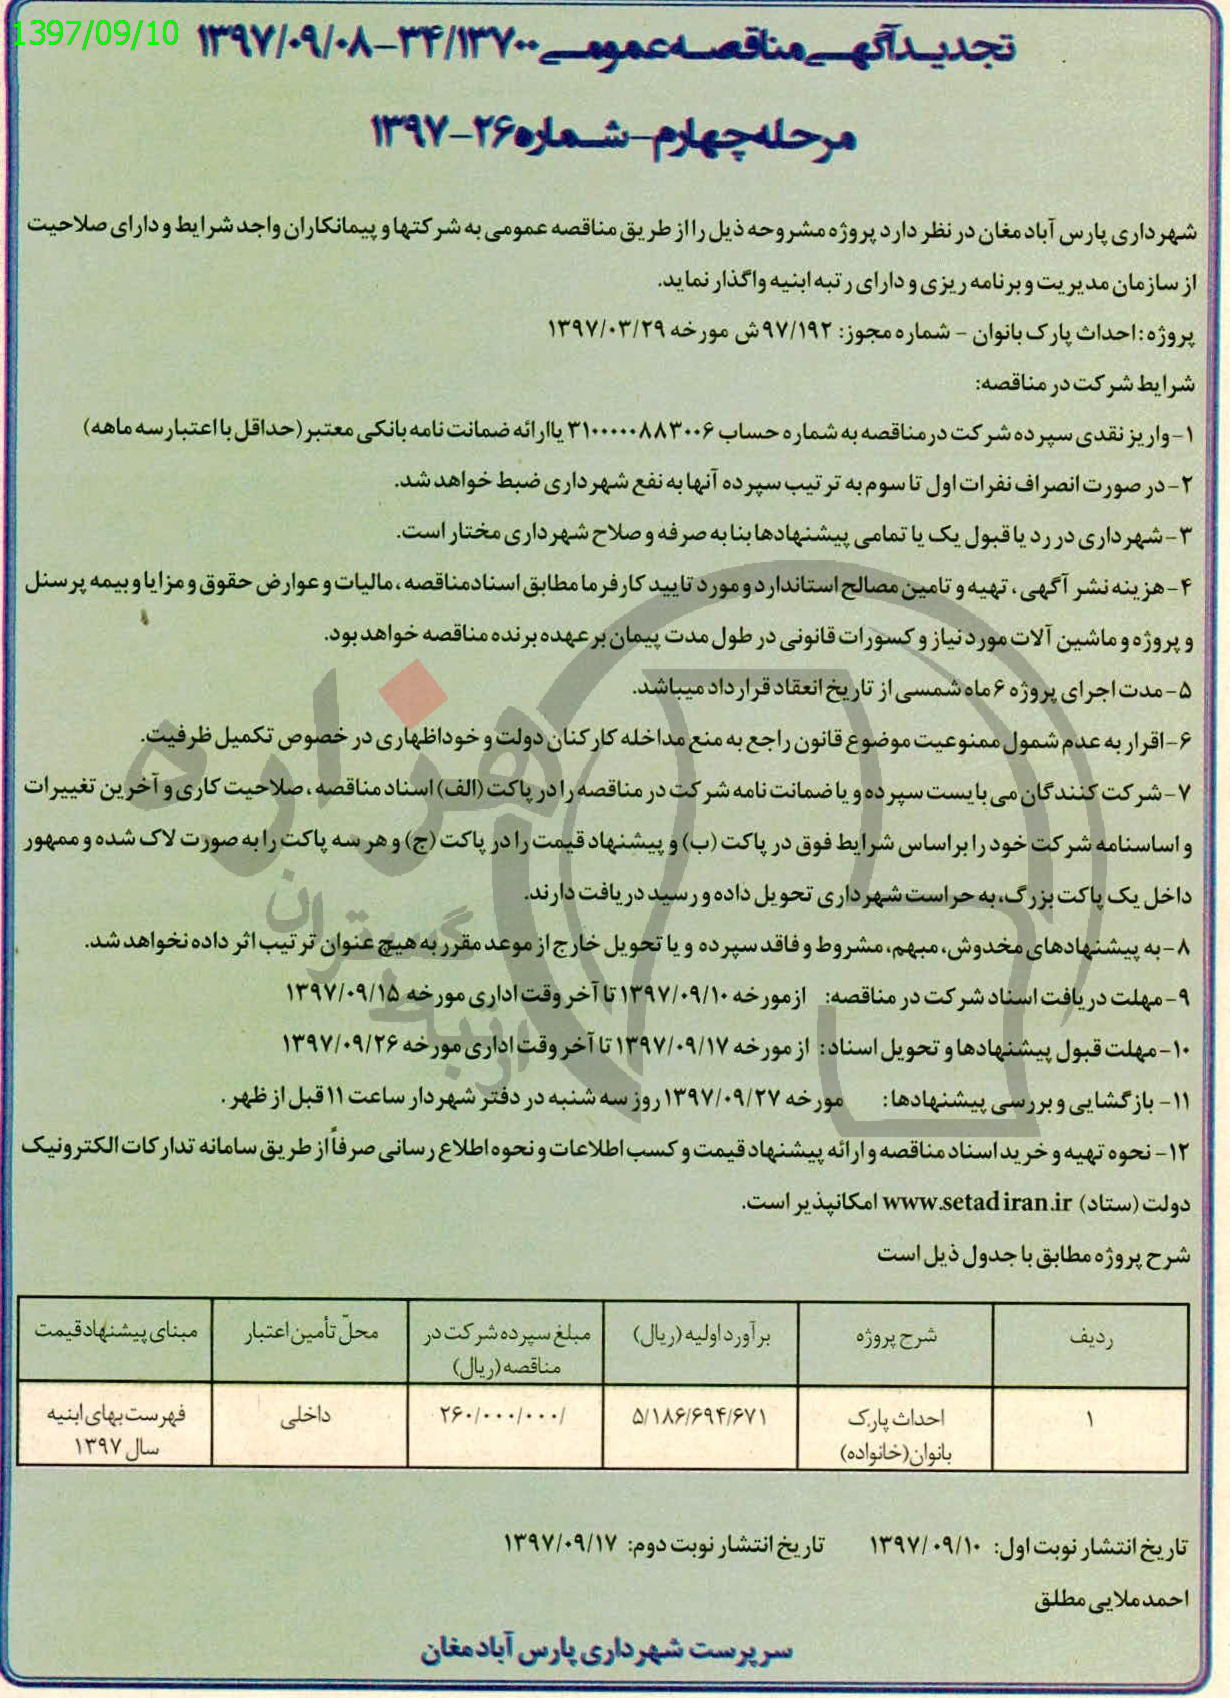 1397/09/10
تجدیدآگهی مناقصه عمومی ۳۴/۱۳۷۰۰-۱۳۹۷/۰۹/۰۸
مرحله چهارم-شماره ۲۶-۱۳۹۷
شهرداری پارس آباد مغان در نظر دارد پروژه مشروحه ذیل را از طریق مناقصه عمومی به شرکتها و پیمانکاران واجد شرایط و دارای صلاحیت
از سازمان مدیریت و برنامه ریزی و دارای رتبه ابنیه واگذار نماید.
پروژه: احداث پارک بانوان - شماره مجوز: ۹۷/۱۹۲ش مورخه ۱۳۹۷/۰۳/۲۹
شرایط شرکت در مناقصه:
۱-واریز نقدی سپرده شرکت در مناقصه به شماره حساب ۳۱۰۰۰۰۰۸۸۳۰۰۶ یا ارائه ضمانت نامه بانکی معتبر (حداقل با اعتبار سه ماهه)
۲-در صورت انصراف نفرات اول تا سوم به ترتیب سپرده آنها به نفع شهرداری ضبط خواهد شد.
۳-شهرداری در رد یا قبول یک یا تمامی پیشنهادها بنا به صرفه و صلاح شهرداری مختار است.
۴-هزینه نشر آگهی، تهیه و تامین مصالح استاندارد و مورد تایید کارفرما مطابق اسناد مناقصه، مالیات و عوارض حقوق و مزایا و بیمه پرسنل
و پروژه و ماشین آلات مورد نیاز و کسورات قانونی در طول مدت پیمان بر عهده برنده مناقصه خواهد بود.
۵-مدت اجرای پروژه ۶ ماه شمسی از تاریخ انعقاد قرارداد میباشد.
۶-اقرار به عدم شمول ممنوعیت موضوع قانون راجع به منع مداخله کارکنان دولت و خوداظهاری در خصوص تکمیل ظرفیت.
۷-شرکت کنندگان می بایست سپرده و یا ضمانت نامه شرکت در مناقصه را در پاکت (الف) اسناد مناقصه، صلاحیت کاری و آخرین تغییرات
و اساسنامه شرکت خود را براساس شرایط فوق در پاکت (ب) و پیشنهاد قیمت را در پاکت (ج) و هر سه پاکت را به صورت لاک شده و ممهور
داخل یک پاکت بزرگ، به حراست شهرداری تحویل داده و رسید دریافت دارند.
۸-به پیشنهادهای مخدوش، مبهم، مشروط و فاقد سپرده و یا تحویل خارج از موعد مقرر به هیچ عنوان ترتیب اثر داده نخواهد شد.
۹-مهلت دریافت اسناد شرکت در مناقصه: ازمورخه ۱۳۹۷/۰۹/۱۰ تا آخر وقت اداری مورخه ۱۳۹۷/۰۹/۱۵
۱۰-مهلت قبول پیشنهادها و تحویل اسناد: از مورخه ۱۳۹۷/۰۹/۱۷ تا آخر وقت اداری مورخه ۱۳۹۷/۰۹/۲۶
۱۱- بازگشایی و بررسی پیشنهادها: مورخه ۱۳۹۷/۰۹/۲۷ روز سه شنبه در دفتر شهردار ساعت ۱۱ قبل از ظهر .
۱۲- نحوه تهیه و خرید اسناد مناقصه و ارائه پیشنهاد قیمت و کسب اطلاعات و نحوه اطلاع رسانی صرفاً از طریق سامانه تدارکات الکترونیک
دولت (ستاد) www.setadiran.ir امکانپذیر است.
شرح پروژه مطابق با جدول ذیل است
ردیف شرح پروژه برآورد اولیه (ریال) مبلغ سپرده شرکت در مناقصه (ریال) محلّ تأمین اعتبار مبنای پیشنهاد قیمت
۱ احداث پارک بانوان (خانواده) ۵/۱۸۶/۶۹۴/۶۷۱ ۲۶۰/۰۰۰/۰۰۰/ داخلی فهرست بهای ابنیه سال ۱۳۹۷
تاریخ انتشار نوبت اول: ۱۳۹۷/۰۹/۱۰ تاریخ انتشار نوبت دوم: ۱۳۹۷/۰۹/۱۷
احمد ملایی مطلق
سرپرست شهرداری پارس آباد مغان
هزاره
گستران
ارتباط